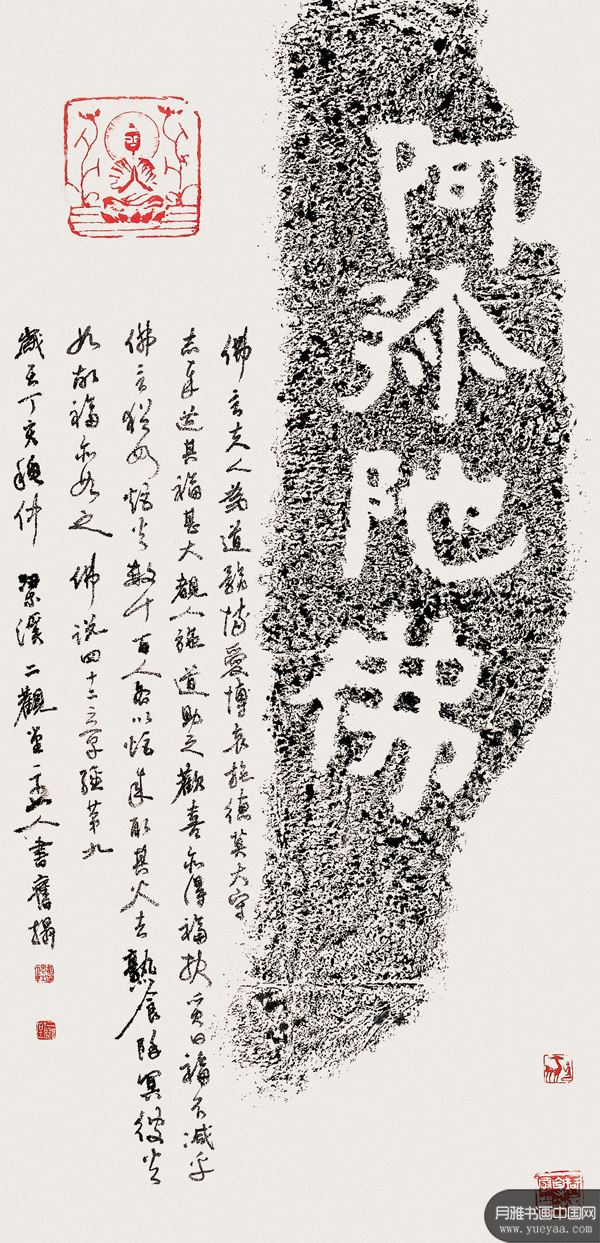 阿弥陁佛
佛言夫人為道務博愛博哀施德莫大守
志奉道其福甚大覩人施道助之歡喜亦得福报質曰福不減乎
佛言猶如炬火數千百人各以炬來取其火去熟食除冥彼火
如故福亦如之 佛說四十二章經第九
歲在丁亥穐仲 梁溪二觀堂主人書舊搨
月雅书画中国网
www.yueyaa.com